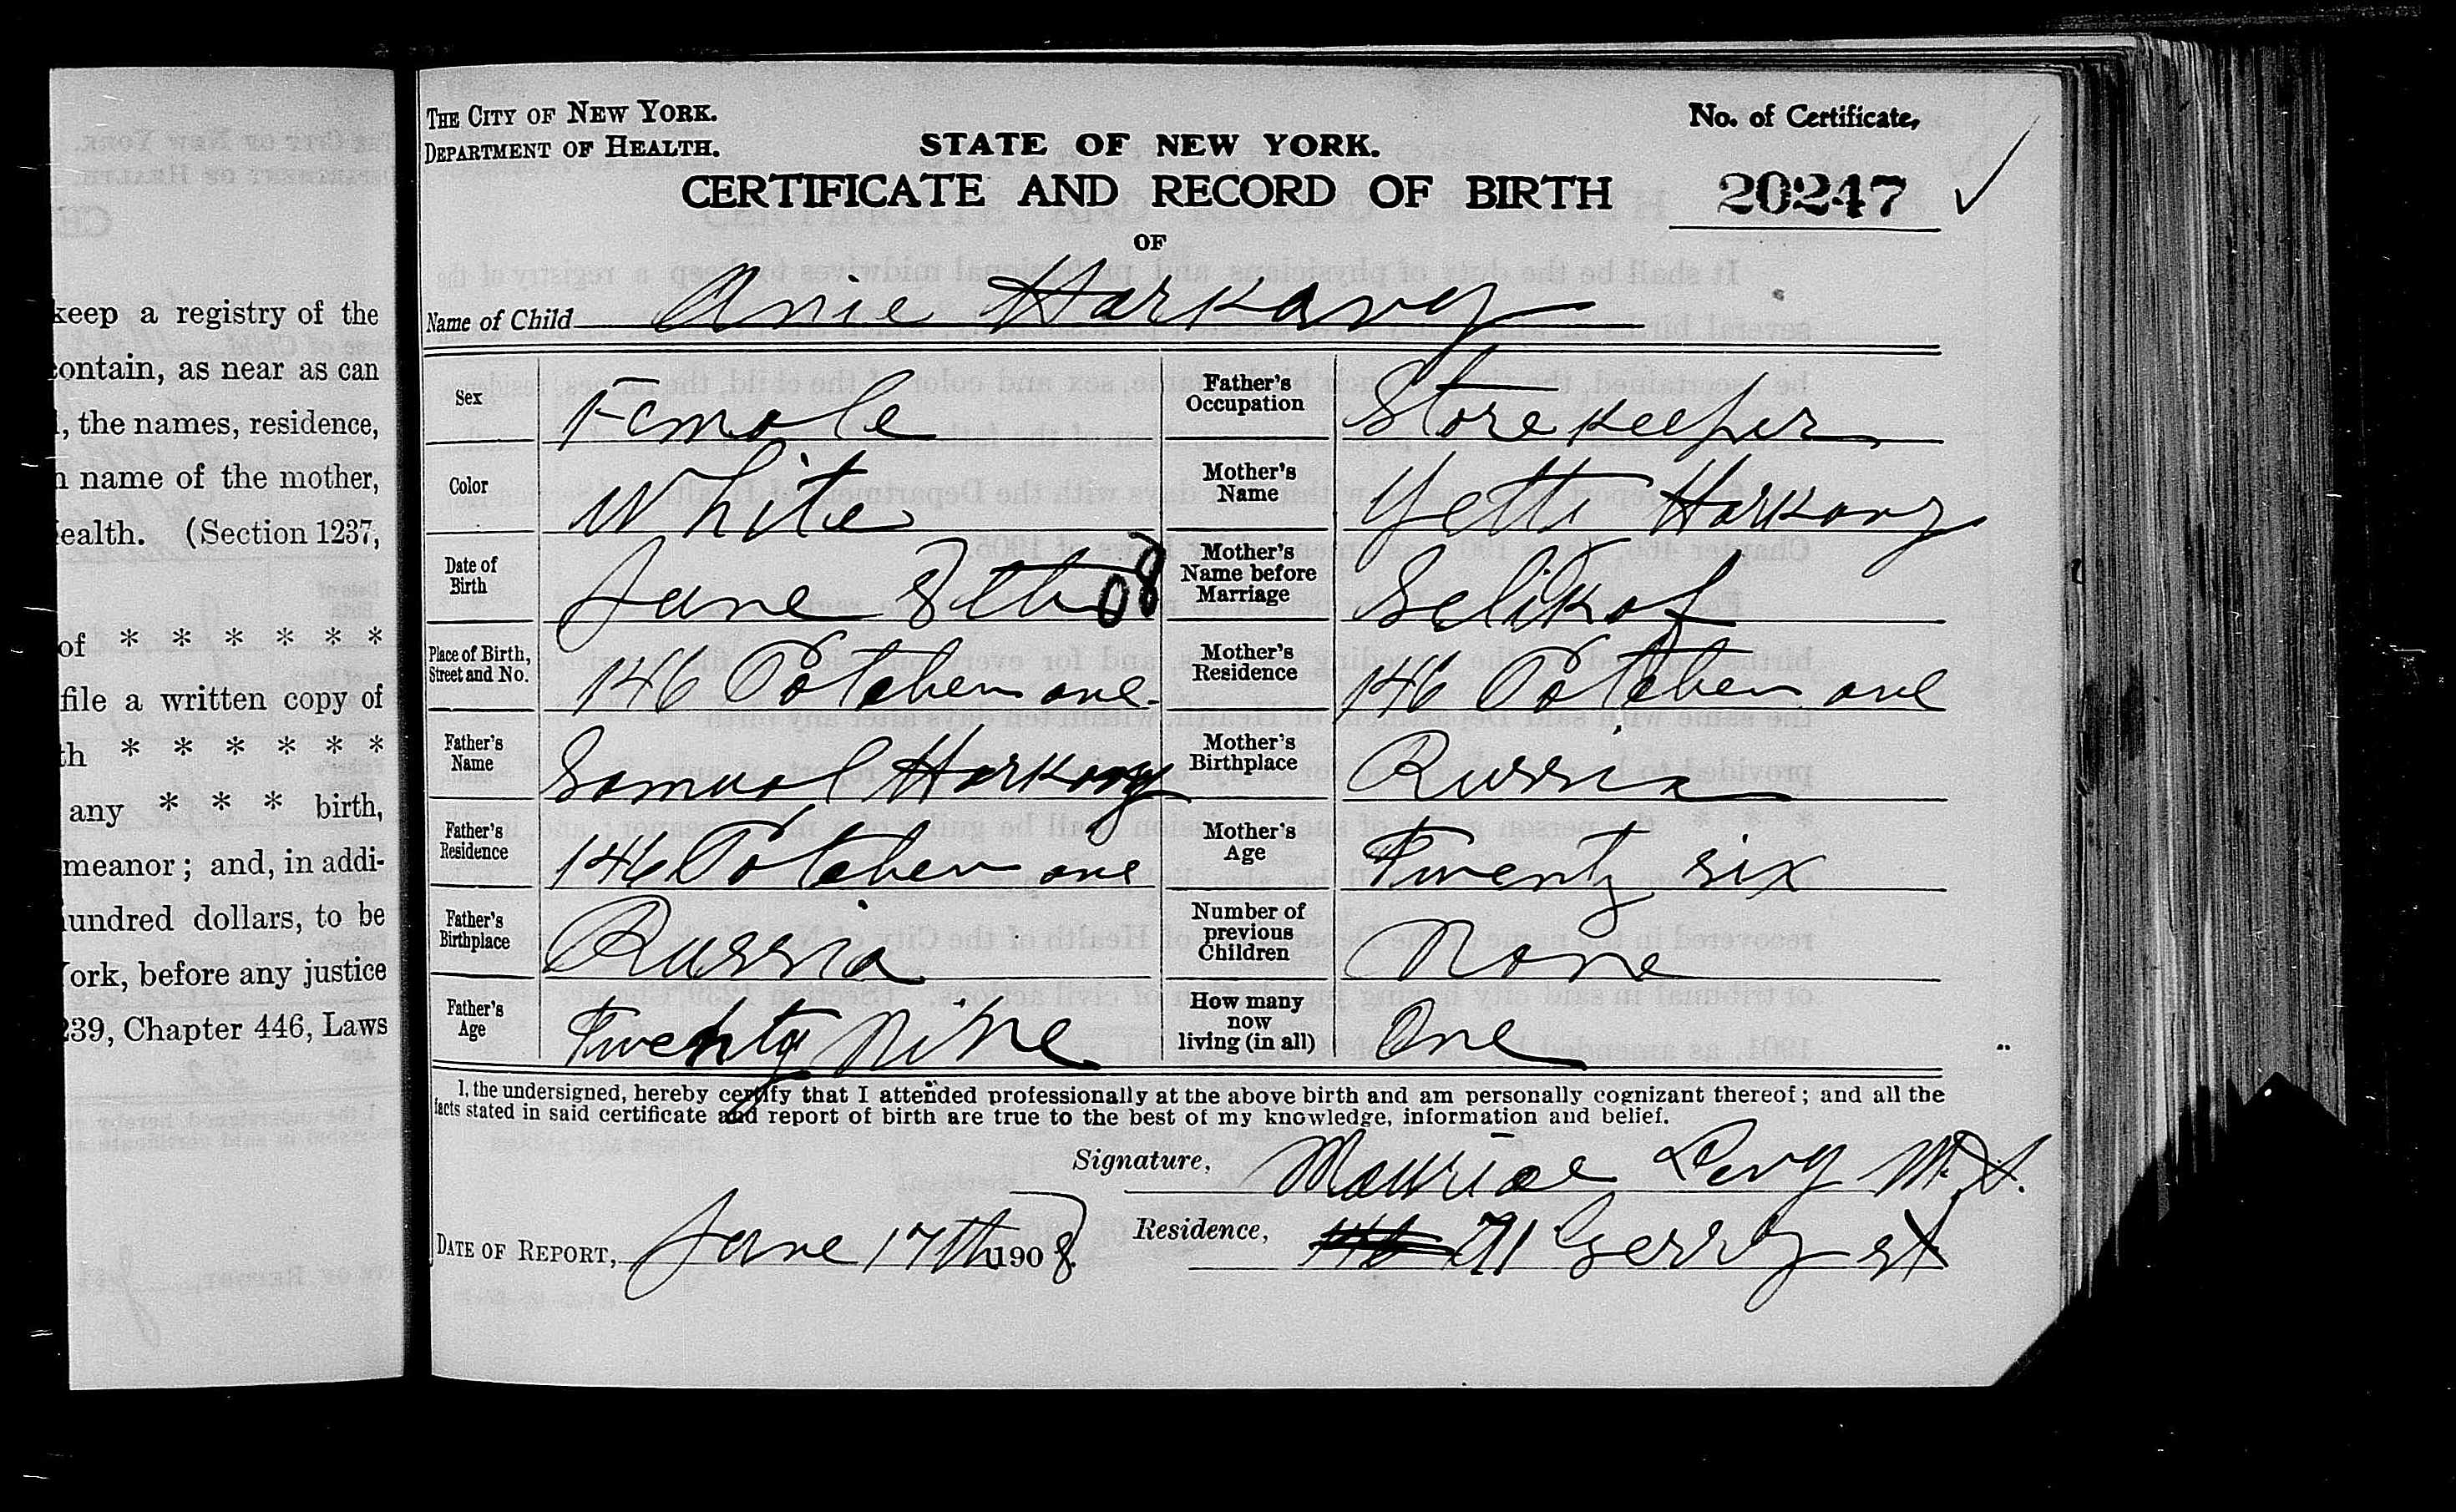 keep a registry of the
contain, as near as can
, the names, residence,
name of the mother,
ealth. (Section 1237,
of * * * * * *
file a written copy of
th * * * * * *
any * * * birth,
meanor; and, in addi-
undred dollars, to be
ork, before any justice
239, Chapter 446, Laws
THE CITY OF NEW YORK.
DEPARTMENT OF HEALTH.
STATE OF NEW YORK.
No. of Certificate,
CERTIFICATE AND RECORD OF BIRTH
20247
OF
Name of Child Anie Harkavy
Sex Female
Father's Occupation Storekeeper
Color White
Mother's Name Yetti Harkavy
Date of Birth June 8th 08
Mother's Name before Marriage Selikof
Place of Birth, Street and No. 146 Patchen ave.
Mother's Residence 146 Patchen ave
Father's Name Samuel Harkavy
Mother's Birthplace Russia
Father's Residence 146 Patchen ave
Mother's Age Twenty six
Father's Birthplace Russia
Number of previous Children None
Father's Age Twenty Nine
How many now living (in all) One
I, the undersigned, hereby certify that I attended professionally at the above birth and am personally cognizant thereof; and all the
facts stated in said certificate and report of birth are true to the best of my knowledge, information and belief.
Signature, Maurice Levy M.D.
DATE OF REPORT, June 17th 1908
Residence, 71 Gerry st